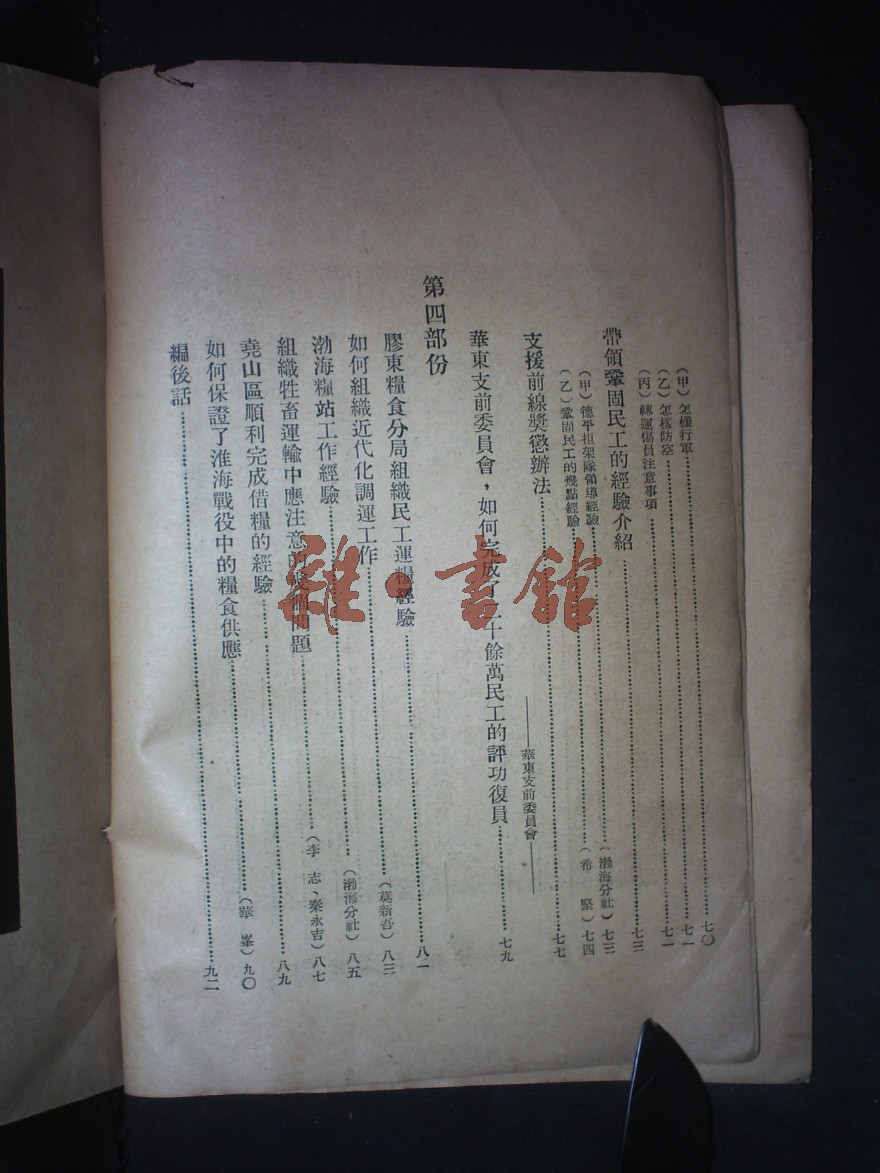 (甲)怎樣行軍……七〇
(乙)怎樣防空……七一
(丙)轉運傷員注意事項……七一
帶領鞏固民工的經驗介紹……七三
(甲)德平担架隊領導經驗……(渤海分社)七三
(乙)鞏固民工的幾點經驗……(希 堅)七四
——華東支前委員會——
支援前線獎懲辦法……七七
華東支前委員會,如何完成了二十餘萬民工的評功復員……七九
第四部份
膠東糧食分局組織民工運糧經驗……八一
如何組織近代化調運工作……(莫新吾)八三
渤海糧站工作經驗……(渤海分社)八五
組織牲畜運輸中應注意的幾個問題……(李 志、秦永吉)八七
堯山區順利完成借糧的經驗……八九
如何保證了淮海戰役中的糧食供應……(華 峯)九〇
編後話……九二
雜·書館